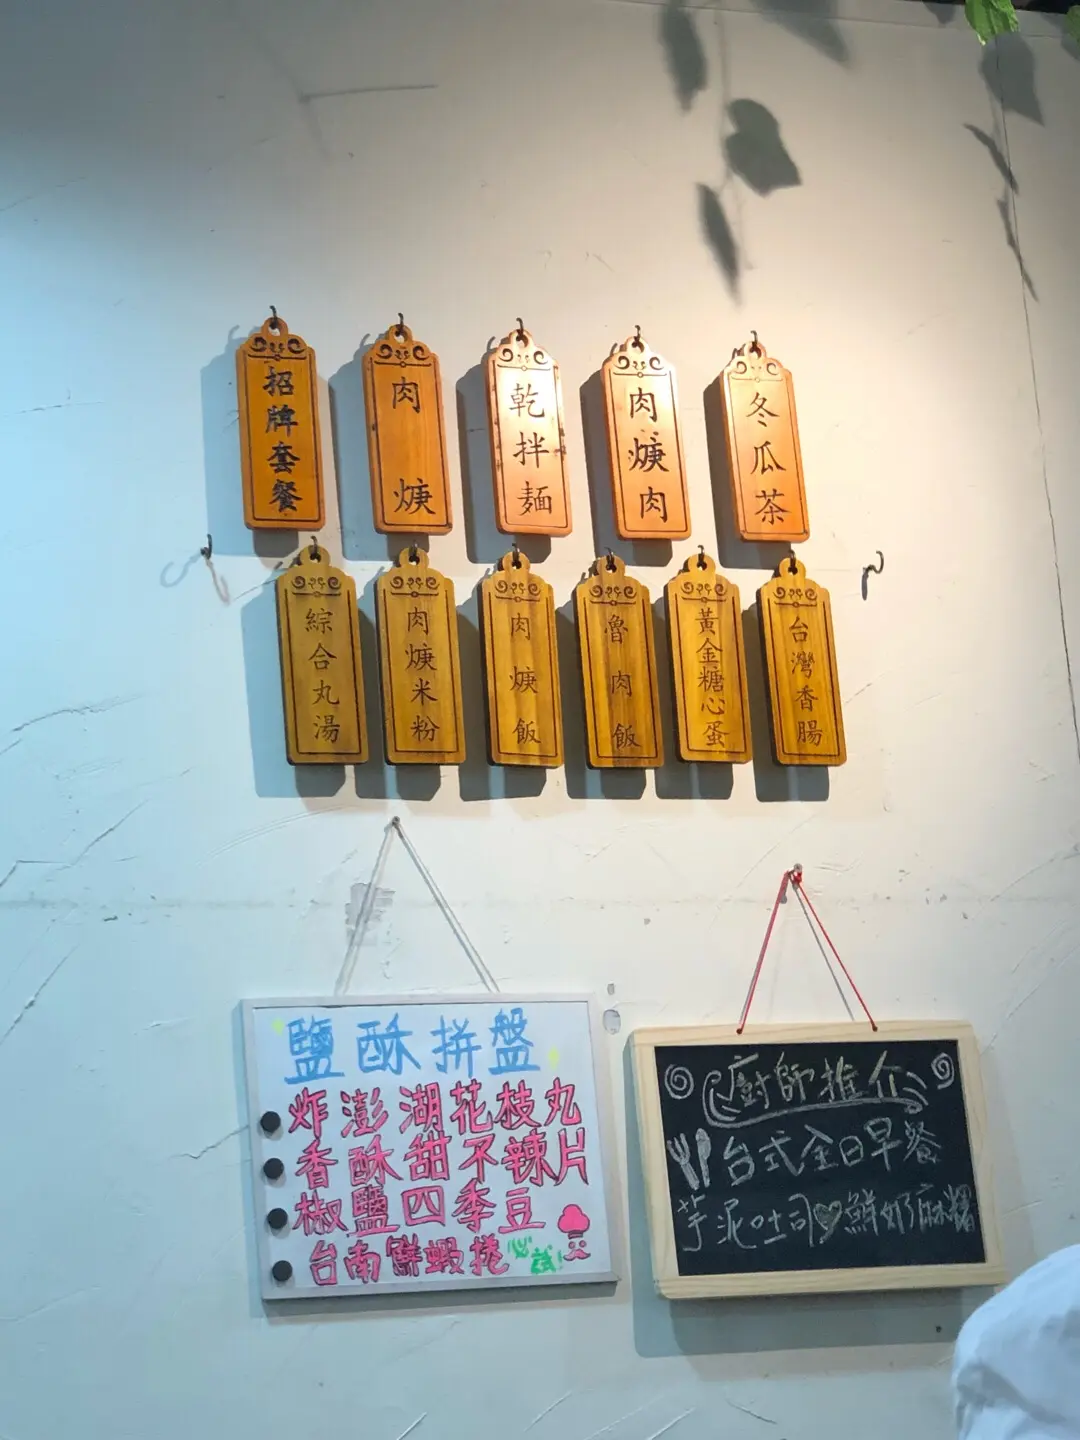 招牌套餐
肉焿
乾拌麵
肉焿肉
冬瓜茶
綜合丸湯
肉焿米粉
肉焿飯
魯肉飯
黃金糖心蛋
台灣香腸
鹽酥拼盤
炸澎湖花枝丸
香酥甜不辣片
椒鹽四季豆
台南鮮蝦捲 必試!
廚師推介
台式全日早餐
芋泥吐司♡鮮奶麻糬